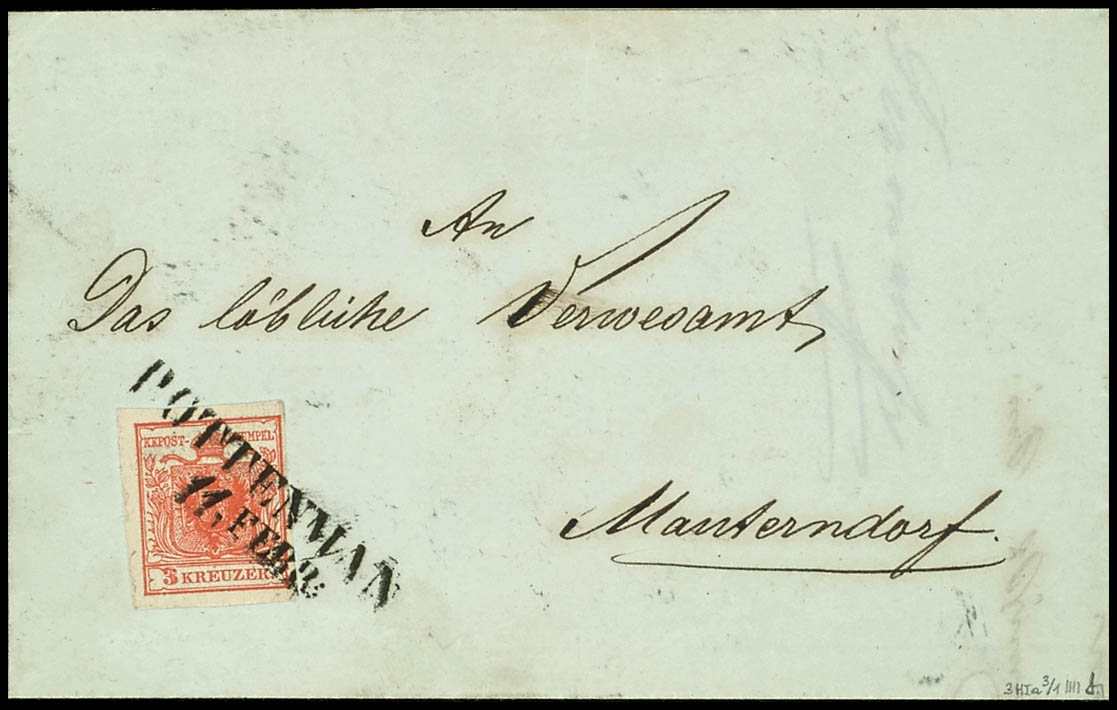 An
Das löbliche Verwesamt
Mauterndorf.
POTTENMAN
11, FEBR:
KKPOST-STEMPEL
3 KREUZER.
3 HIa 3/1